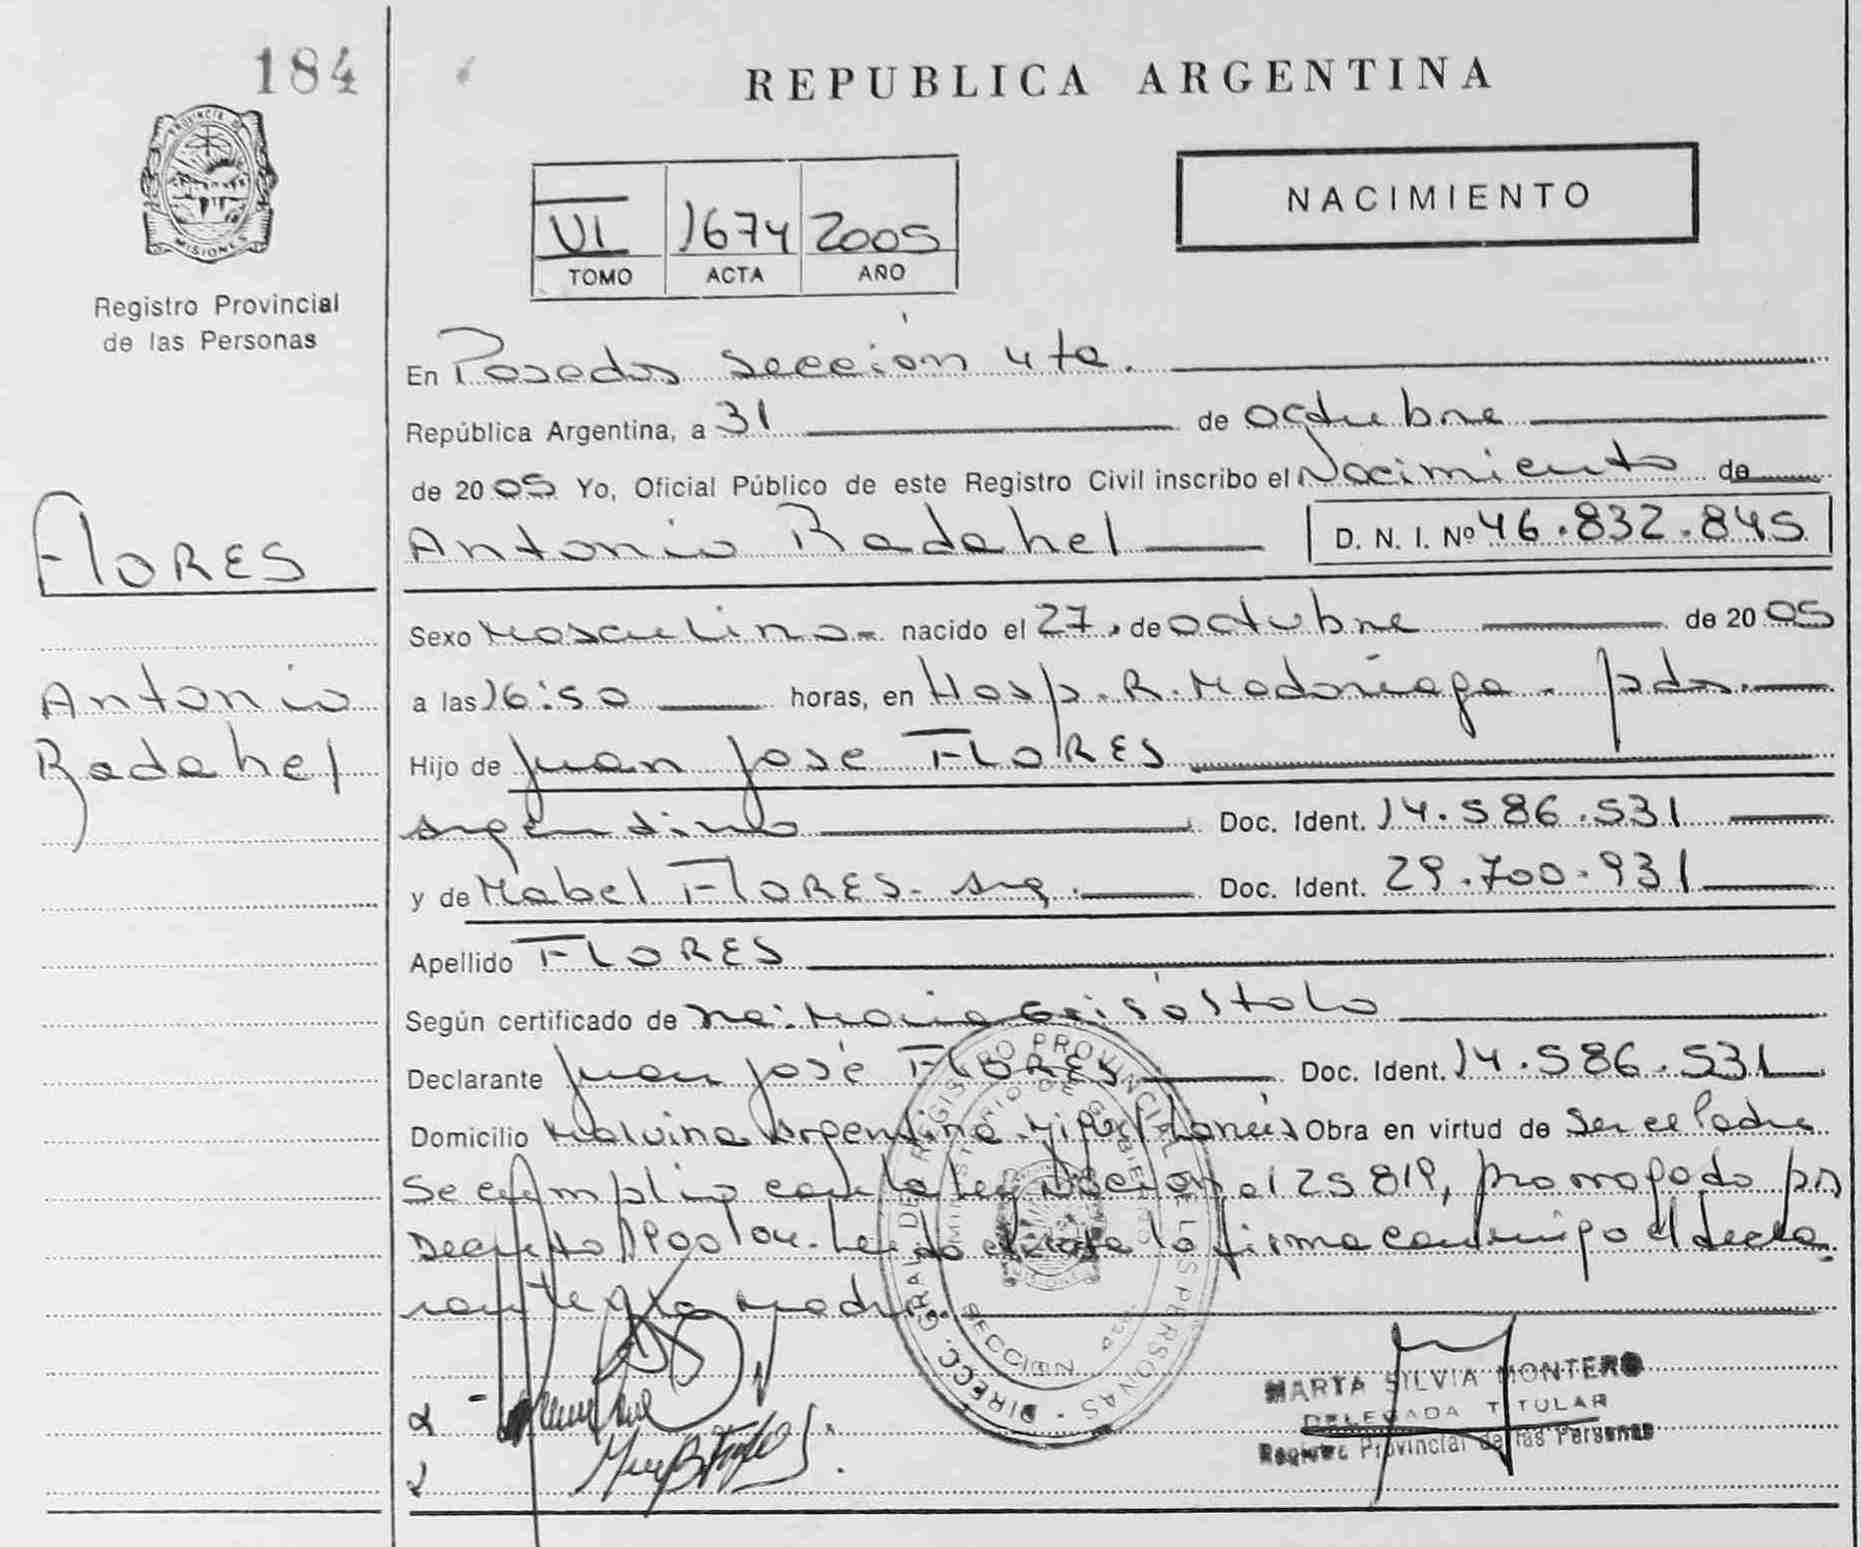 184
REPUBLICA ARGENTINA
PROVINCIA DE
MISIONES
Registro Provincial
de las Personas
NACIMIENTO
VI 1674 2005
TOMO ACTA AÑO
En Posadas sección 4ta.
República Argentina, a 31 de octubre
de 2005 Yo, Oficial Público de este Registro Civil inscribo el Nacimiento de
Antonio Radahel D. N. I. Nº 46.832.845
FLORES
Antonio
Radahel
Sexo Masculino nacido el 27 de octubre de 2005
a las 16:50 horas, en Hosp. R. Madariaga - pdas.
Hijo de Juan Jose FLORES
argentino Doc. Ident. 14.586.531
y de Mabel FLORES - arg. Doc. Ident. 29.700.931
Apellido FLORES
Según certificado de María Crisóstolo
Declarante Juan José FLORES Doc. Ident. 14.586.531
Domicilio Malvina Argentina Obra en virtud de ser el Padre
Se cumplio con la ley 25819, prorrogado por
Decreto 1900/04. Leido el acta la firma conmigo el decla
rante y la madre.
DIRECC. GRAL. DE REGISTRO PROVINCIAL DE LAS PERSONAS
MINISTERIO DE GOBIERNO
SECCION
MARTA SILVIA MONTERO
DELEGADA TITULAR
Registro Provincial de las Personas